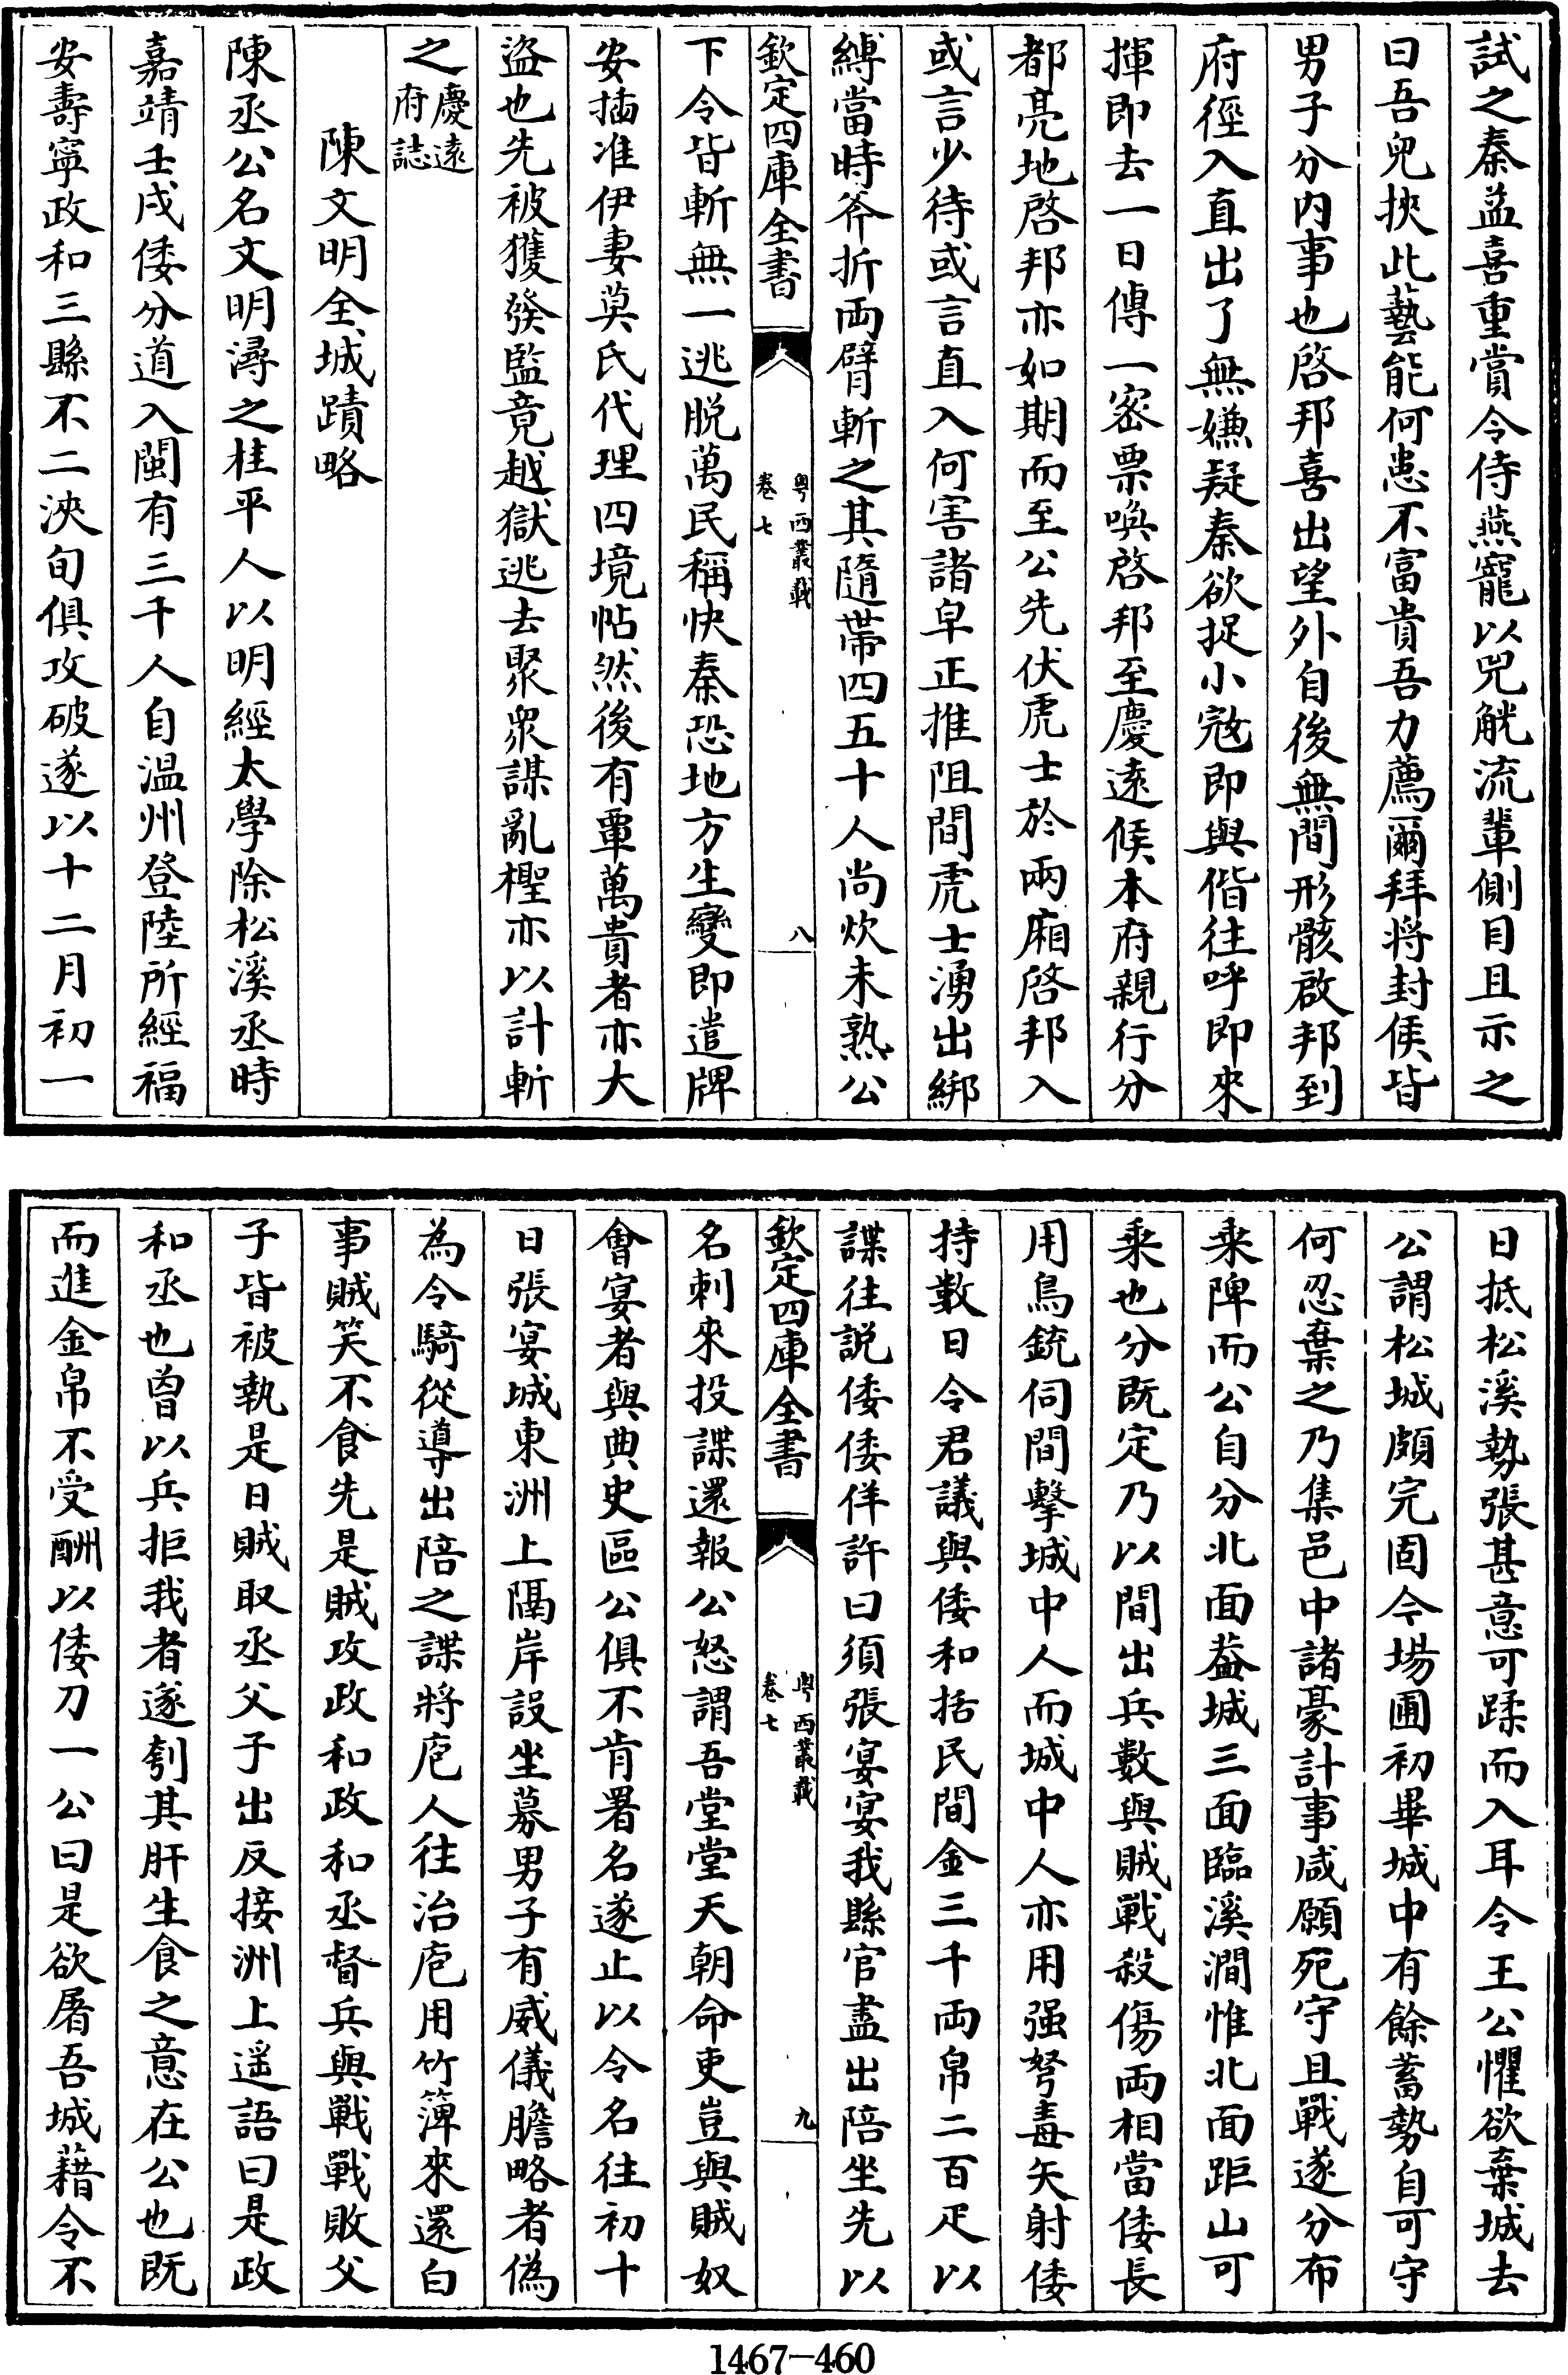 試之秦益喜重賞令侍燕寵以兕觥流輩側目且示之
曰吾兒挾此藝能何患不富貴吾力薦爾拜將封侯皆
男子分內事也啓邦喜出望外自後無間形骸啟邦到
府徑入直出了無嫌疑秦欲捉小寇即與偕往呼即來
揮即去一日傳一密票喚啓邦至慶遠候本府親行分
都亮地啓邦亦如期而至公先伏虎士於兩廂啓邦入
或言少待或言直入何害諸皁正推阻間虎士湧出綁
縛當時斧折兩臂斬之其隨帶四五十人尚炊未熟公
欽定四庫全書
粤西叢載
卷七
八
下令皆斬無一逃脱萬民稱快秦恐地方生變即遣牌
安插准伊妻莫氏代理四境帖然後有覃萬貴者亦大
盜也先被獲發監竟越獄逃去聚衆謀亂檉亦以計斬
之慶遠府誌
陳文明全城蹟略
陳丞公名文明潯之桂平人以明經太學除松溪丞時
嘉靖壬戌倭分道入閩有三千人自溫州登陸所經福
安壽寧政和三縣不二浹旬俱攻破遂以十二月初一
日抵松溪勢張甚意可蹂而入耳令王公懼欲棄城去
公謂松城頗完固今場圃初畢城中有餘蓄勢自可守
何忍棄之乃集邑中諸豪計事咸願死守且戰遂分布
乘陴而公自分北面葢城三面臨溪澗惟北面距山可
乘也分既定乃以間出兵數與賊戰殺傷両相當倭長
用鳥銃伺間擊城中人而城中人亦用强弩毒矢射倭
持數日令君議與倭和括民間金三千両帛二百疋以
諜往説倭倭佯許曰須張宴宴我縣官盡出陪坐先以
欽定四庫全書
粤西叢載
卷七
九
名刺來投諜還報公怒謂吾堂堂天朝命吏豈與賊奴
會宴者與典史區公俱不肯署名遂止以令名往初十
日張宴城東洲上隔岸設坐募男子有威儀膽略者偽
為令騎從導出陪之諜將庖人往治庖用竹簰來還白
事賊笑不食先是賊攻政和政和丞督兵與戰戰敗父
子皆被執是日賊取丞父子出反接洲上遥語曰是政
和丞也曾以兵拒我者遂刳其肝生食之意在公也既
而進金帛不受酬以倭刀一公曰是欲屠吾城藉令不
1467—460